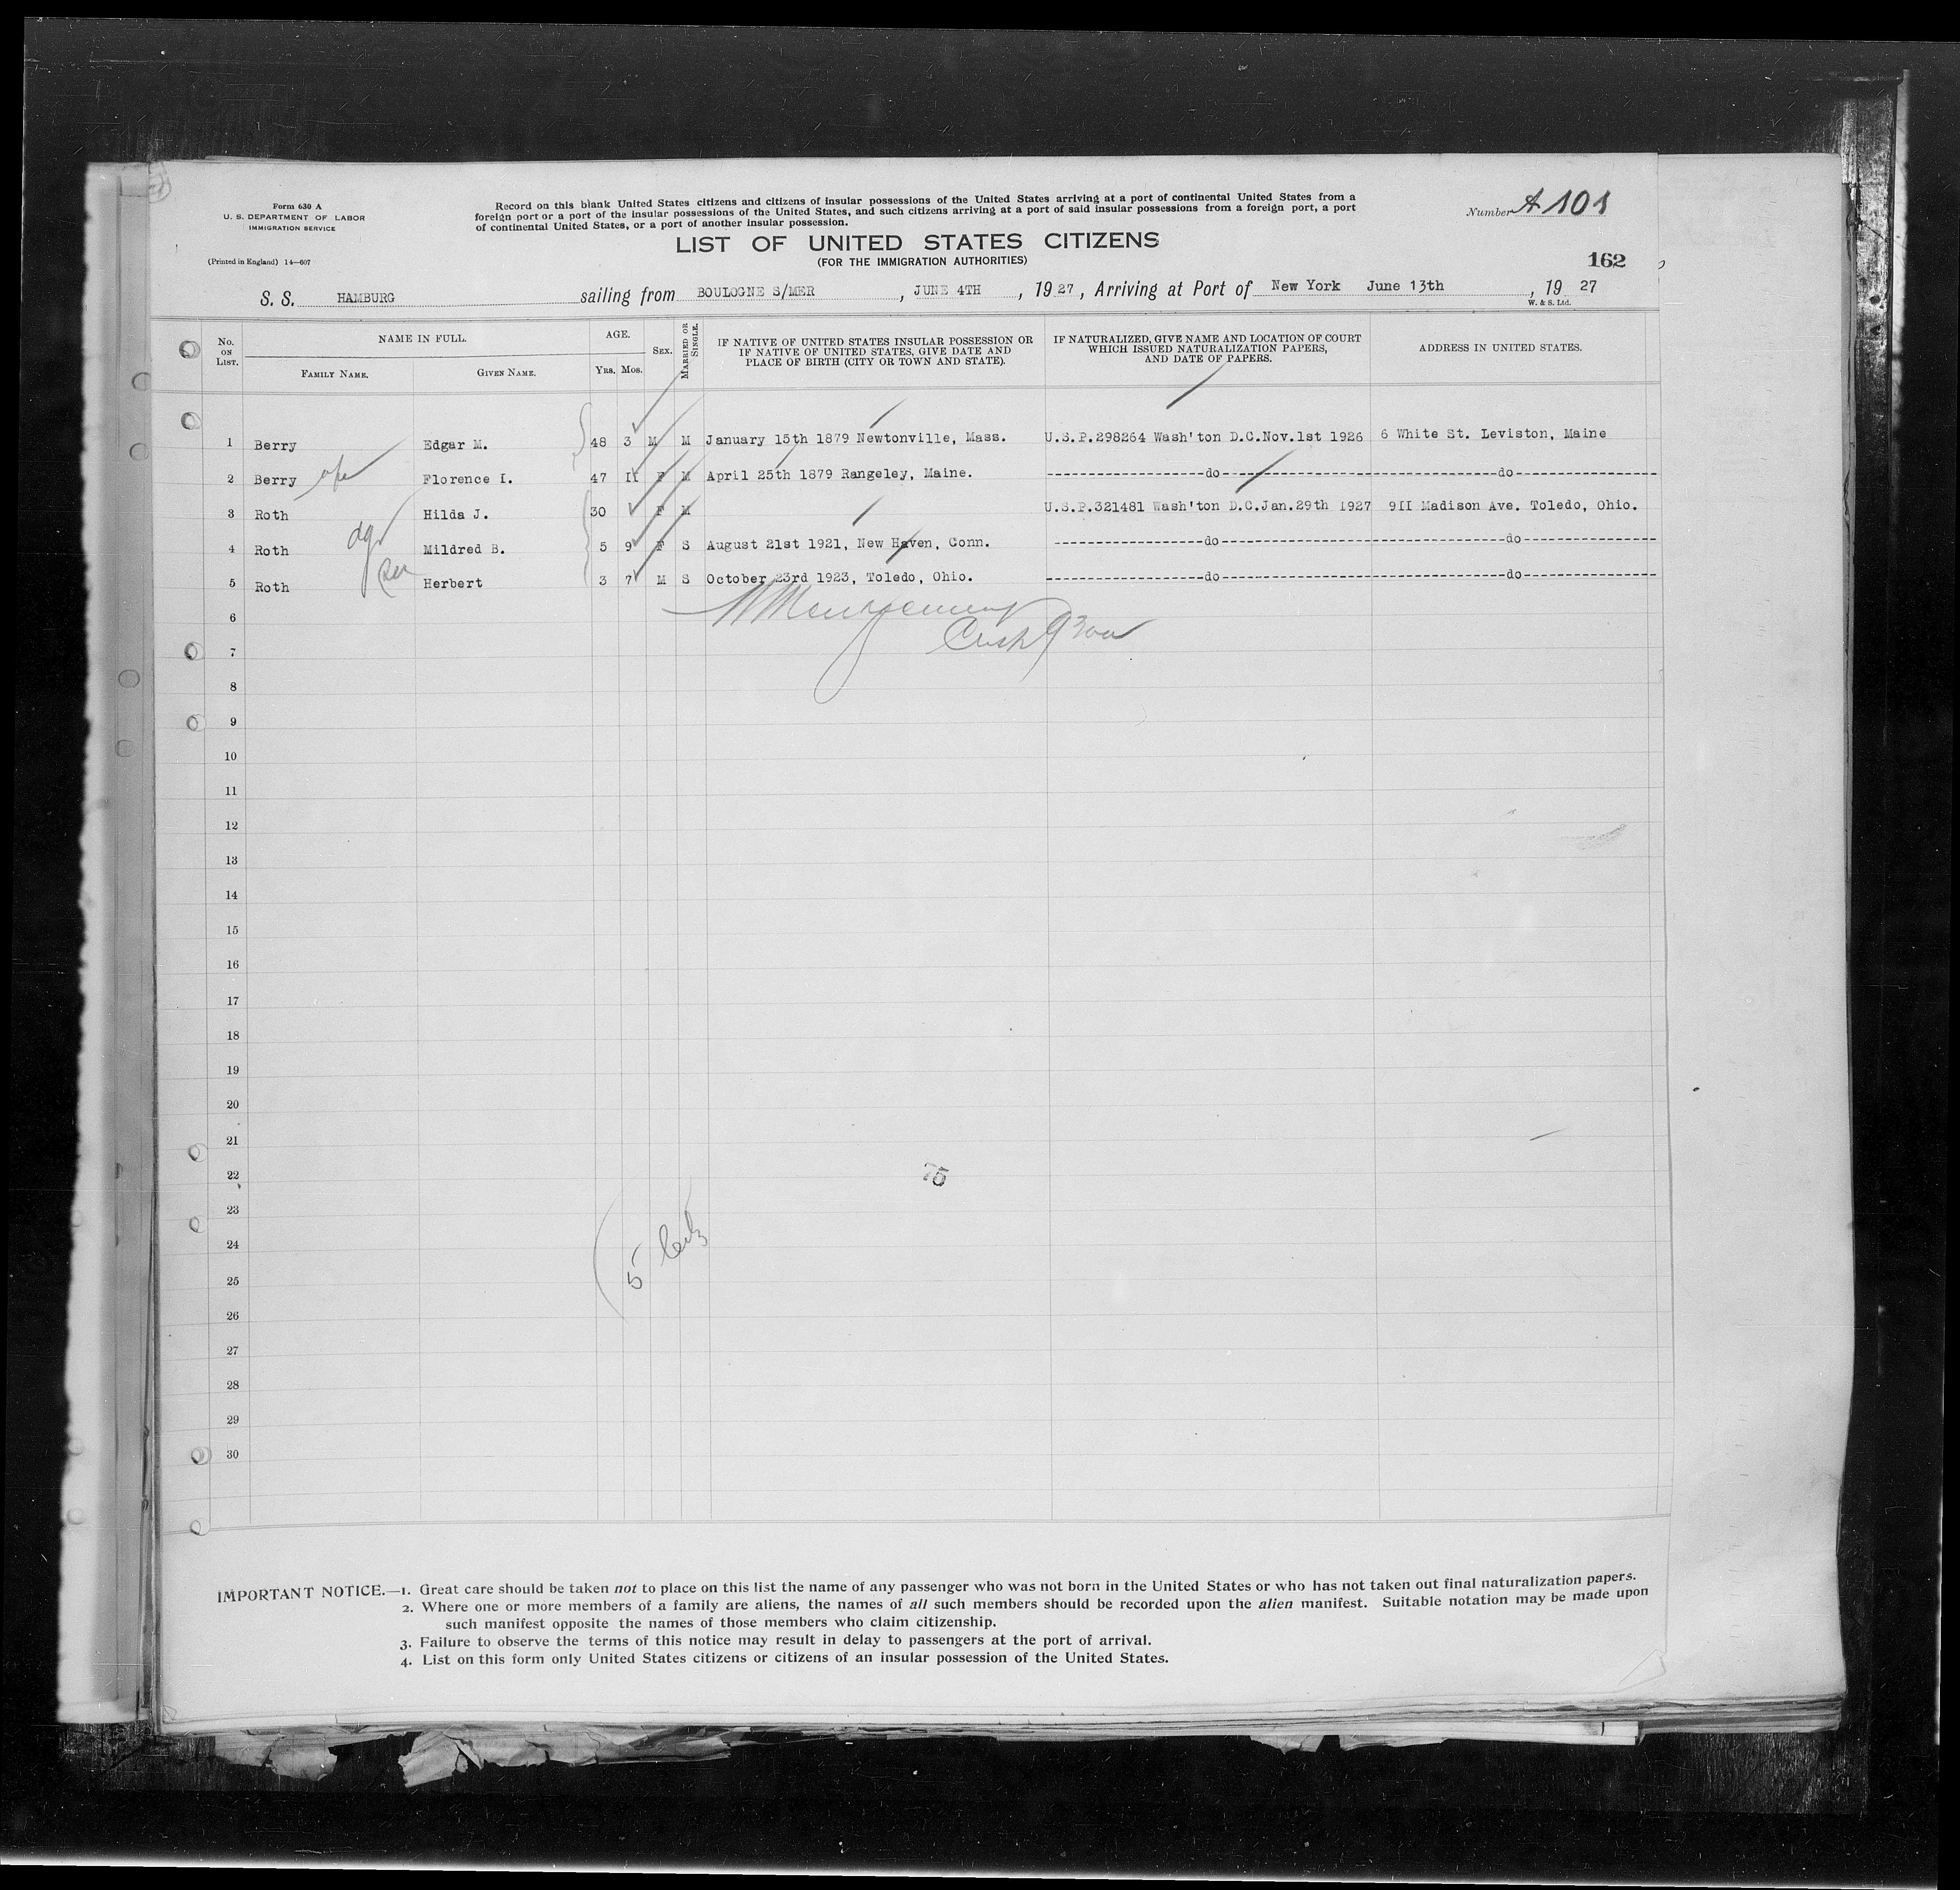 Form 630 A
U. S. DEPARTMENT OF LABOR
IMMIGRATION SERVICE
(Printed in England) 14—607
Record on this blank United States citizens and citizens of insular possessions of the United States arriving at a port of continental United States from a
foreign port or a port of the insular possessions of the United States, and such citizens arriving at a port of said insular possessions from a foreign port, a port
of continental United States, or a port of another insular possession.
LIST OF UNITED STATES CITIZENS
(FOR THE IMMIGRATION AUTHORITIES)
Number A 101
162
S. S. HAMBURG sailing from BOULOGNE S/MER, JUNE 4TH, 1927, Arriving at Port of New York June 13th, 1927
W. & S. Ltd.
No. ON LIST. NAME IN FULL. AGE. SEX. MARRIED OR SINGLE. IF NATIVE OF UNITED STATES INSULAR POSSESSION OR IF NATIVE OF UNITED STATES, GIVE DATE AND PLACE OF BIRTH (CITY OR TOWN AND STATE). IF NATURALIZED, GIVE NAME AND LOCATION OF COURT WHICH ISSUED NATURALIZATION PAPERS, AND DATE OF PAPERS. ADDRESS IN UNITED STATES.
FAMILY NAME. GIVEN NAME. YRS. MOS.
1 Berry Edgar M. 48 3 M M January 15th 1879 Newtonville, Mass. U.S.P.298264 Wash'ton D.C.Nov.1st 1926 6 White St. Leviston, Maine
2 Berry Florence I. 47 II F M April 25th 1879 Rangeley, Maine. do do
3 Roth Hilda J. 30 F M U.S.P.321481 Wash'ton D.C.Jan.29th 1927 9II Madison Ave. Toledo, Ohio.
4 Roth Mildred B. 5 9 F S August 21st 1921, New Haven, Conn. do do
5 Roth Herbert 3 7 M S October 23rd 1923, Toledo, Ohio. do do
6
7
8
9
10
11
12
13
14
15
16
17
18
19
20
21
22
23
24
25
26
27
28
29
30
75
5
IMPORTANT NOTICE.—1. Great care should be taken not to place on this list the name of any passenger who was not born in the United States or who has not taken out final naturalization papers.
2. Where one or more members of a family are aliens, the names of all such members should be recorded upon the alien manifest. Suitable notation may be made upon
such manifest opposite the names of those members who claim citizenship.
3. Failure to observe the terms of this notice may result in delay to passengers at the port of arrival.
4. List on this form only United States citizens or citizens of an insular possession of the United States.